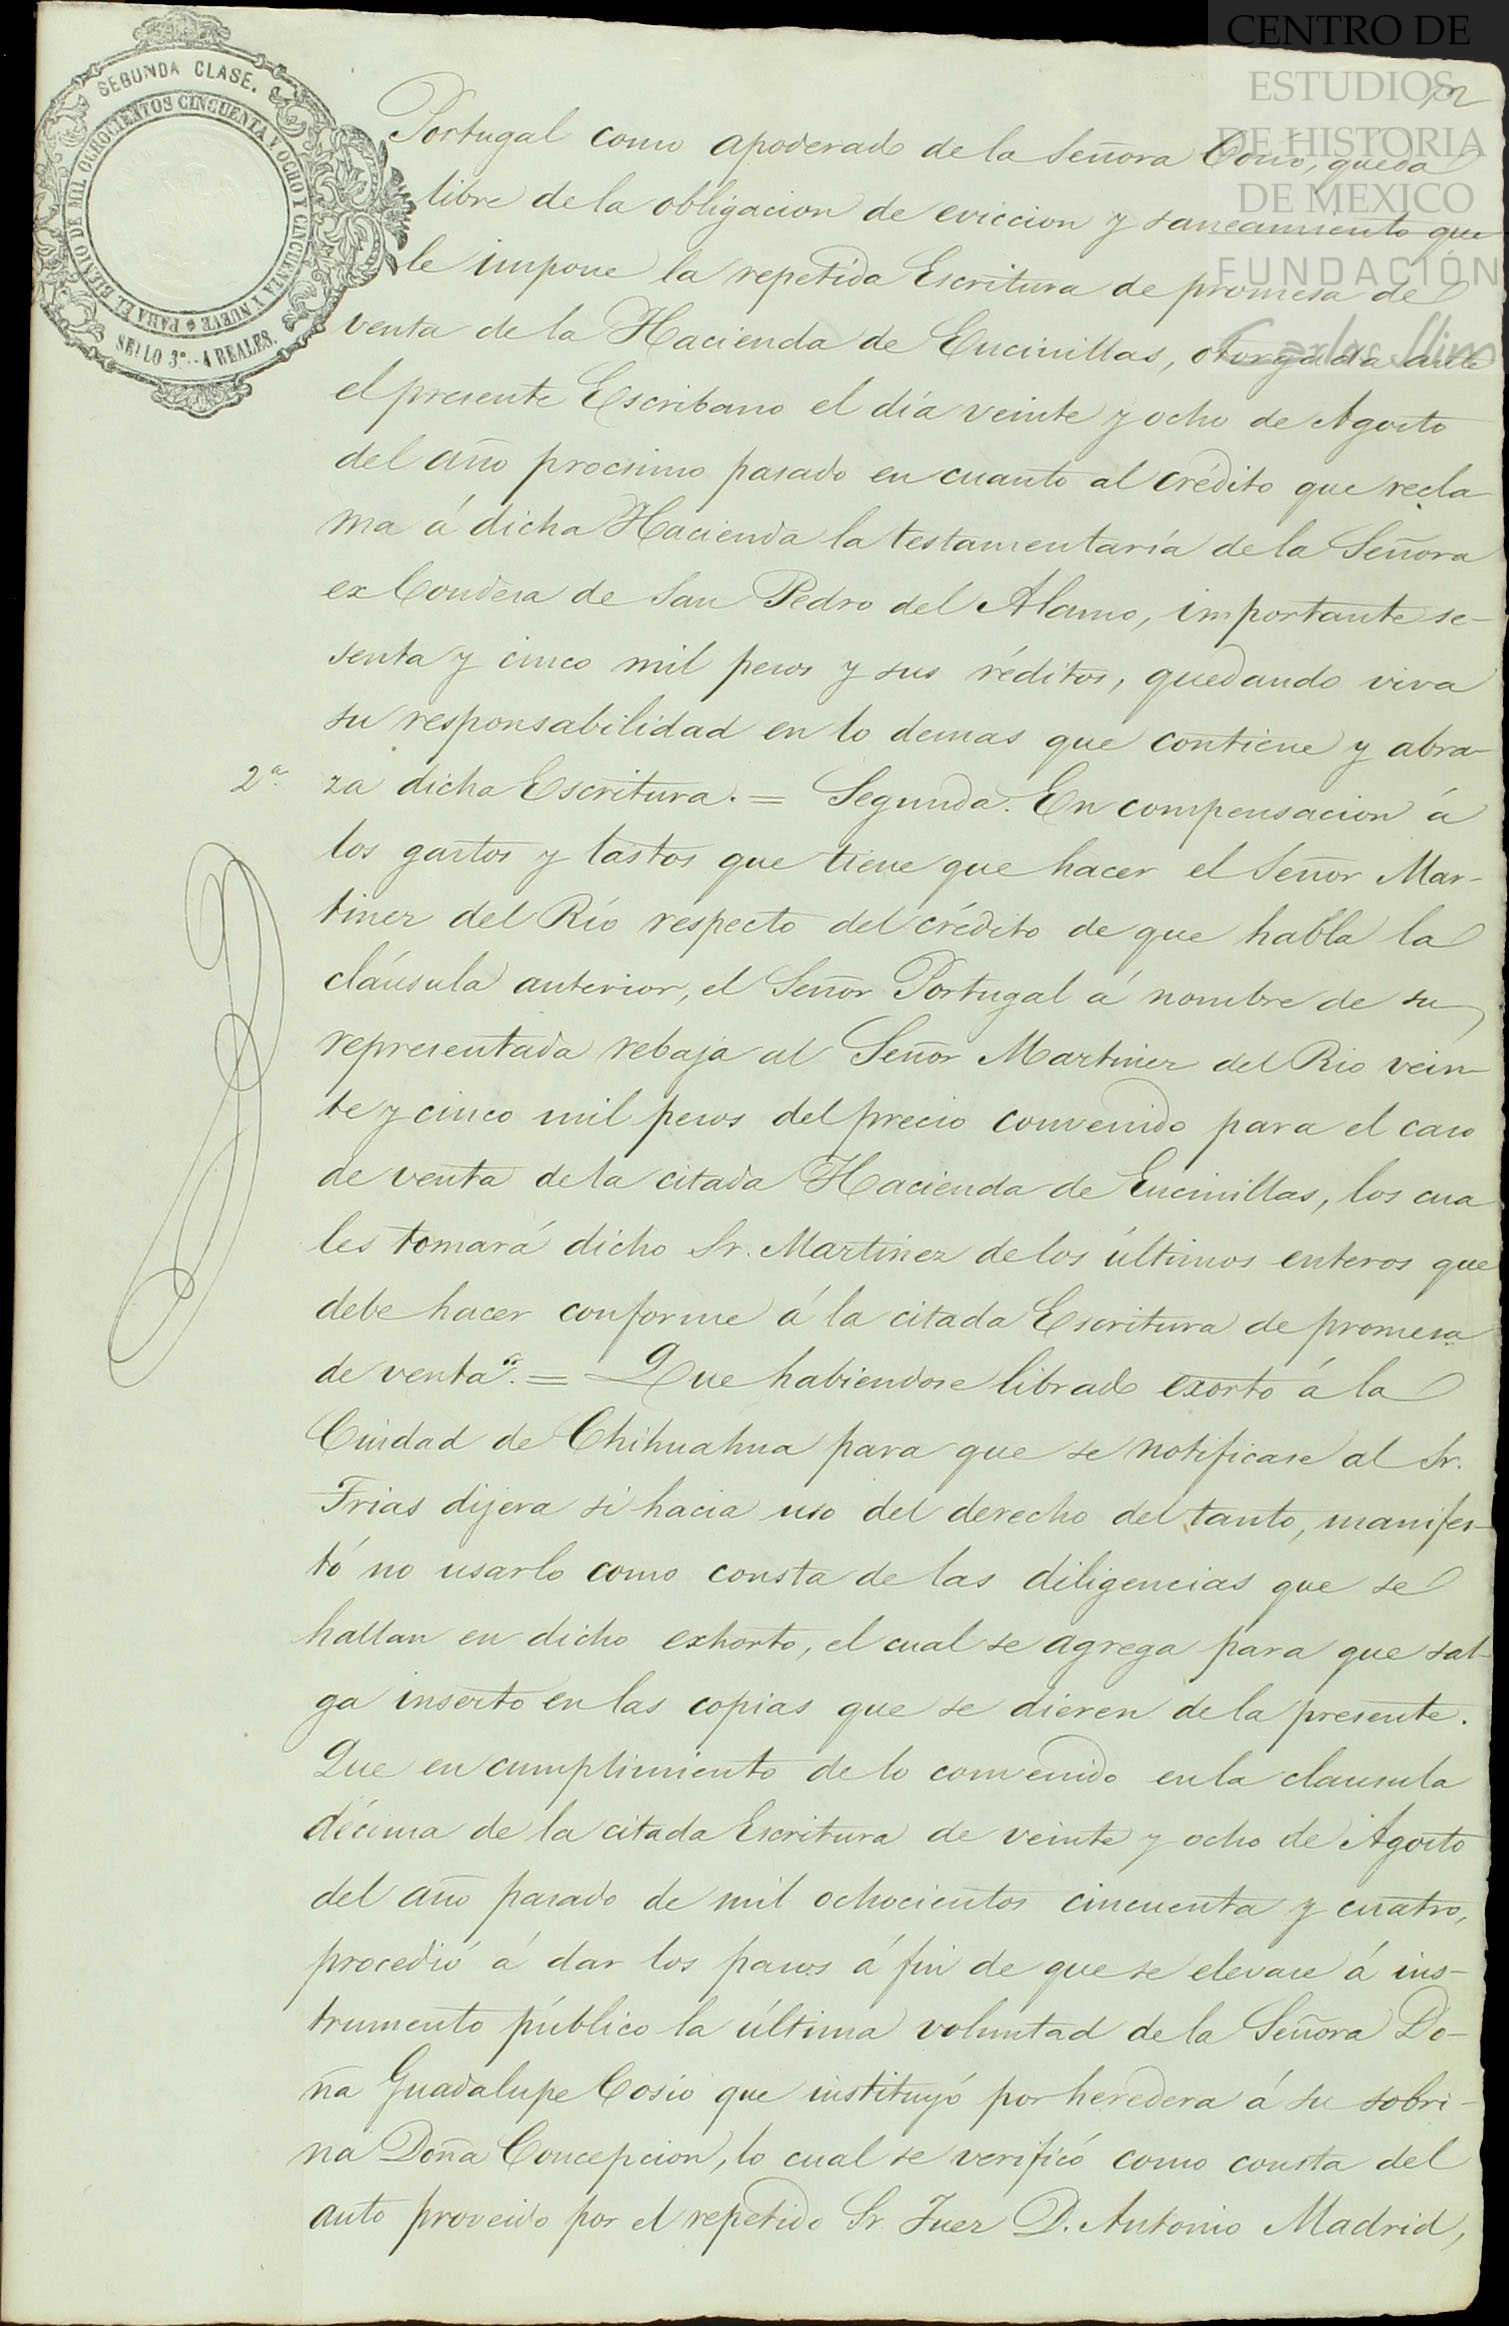 CENTRO DE
ESTUDIOS
DE HISTORIA
DE MEXICO
FUNDACIÓN
Carlos Slim
SEGUNDA CLASE.
PARA EL BIENIO DE MIL OCHOCIENTOS CINCUENTA Y OCHO Y CINCUENTA Y NUEVE
SELLO 3º.. 4 REALES.
Portugal como apoderado de la Señora Cosio, queda
libre de la obligacion de eviccion y saneamiento que
le impone la repetida Escritura de promesa de
venta de la Hacienda de Encinillas, otorgada ante
el presente Escribano el día veinte y ocho de Agosto
del año procsimo pasado en cuanto al crédito que recla
ma á dicha Hacienda la testamentaría de la Señora
ex Condesa de San Pedro del Alamo, importante se-
senta y cinco mil pesos y sus réditos, quedando viva
su responsabilidad en lo demas que contiene y abra-
2ª. za dicha Escritura. = Segunda. En compensacion á
los gastos y lastos que tiene que hacer el Señor Mar-
tinez del Río respecto del crédito de que habla la
cláusula anterior, el Señor Portugal á nombre de su
representada rebaja al Señor Martinez del Rio vein-
te y cinco mil pesos del precio convenido para el caso
de venta de la citada Hacienda de Encinillas, los cua
les tomará dicho Sr. Martinez de los últimos enteros que
debe hacer conforme á la citada Escritura de promesa
de venta". = Que habiendose librado exorto á la
Ciudad de Chihuahua para que se notificase al Sr.
Frias dijera si hacia uso del derecho del tanto, manifes-
tó no usarlo como consta de las diligencias que se
hallan en dicho exhorto, el cual se agrega para que sal-
ga inserto en las copias que se dieren de la presente.
Que en cumplimiento de lo convenido en la clausula
décima de la citada Escritura de veinte y ocho de Agosto
del año pasado de mil ochocientos cincuenta y cuatro,
procedió á dar los pasos á fin de que se elevase á ins-
trumento público la última voluntad de la Señora Do-
ña Guadalupe Cosío que instituyó por heredera á su sobri-
na Doña Concepcion, lo cual se verificó como consta del
auto proveido por el repetido Sr. Juez D. Antonio Madrid,